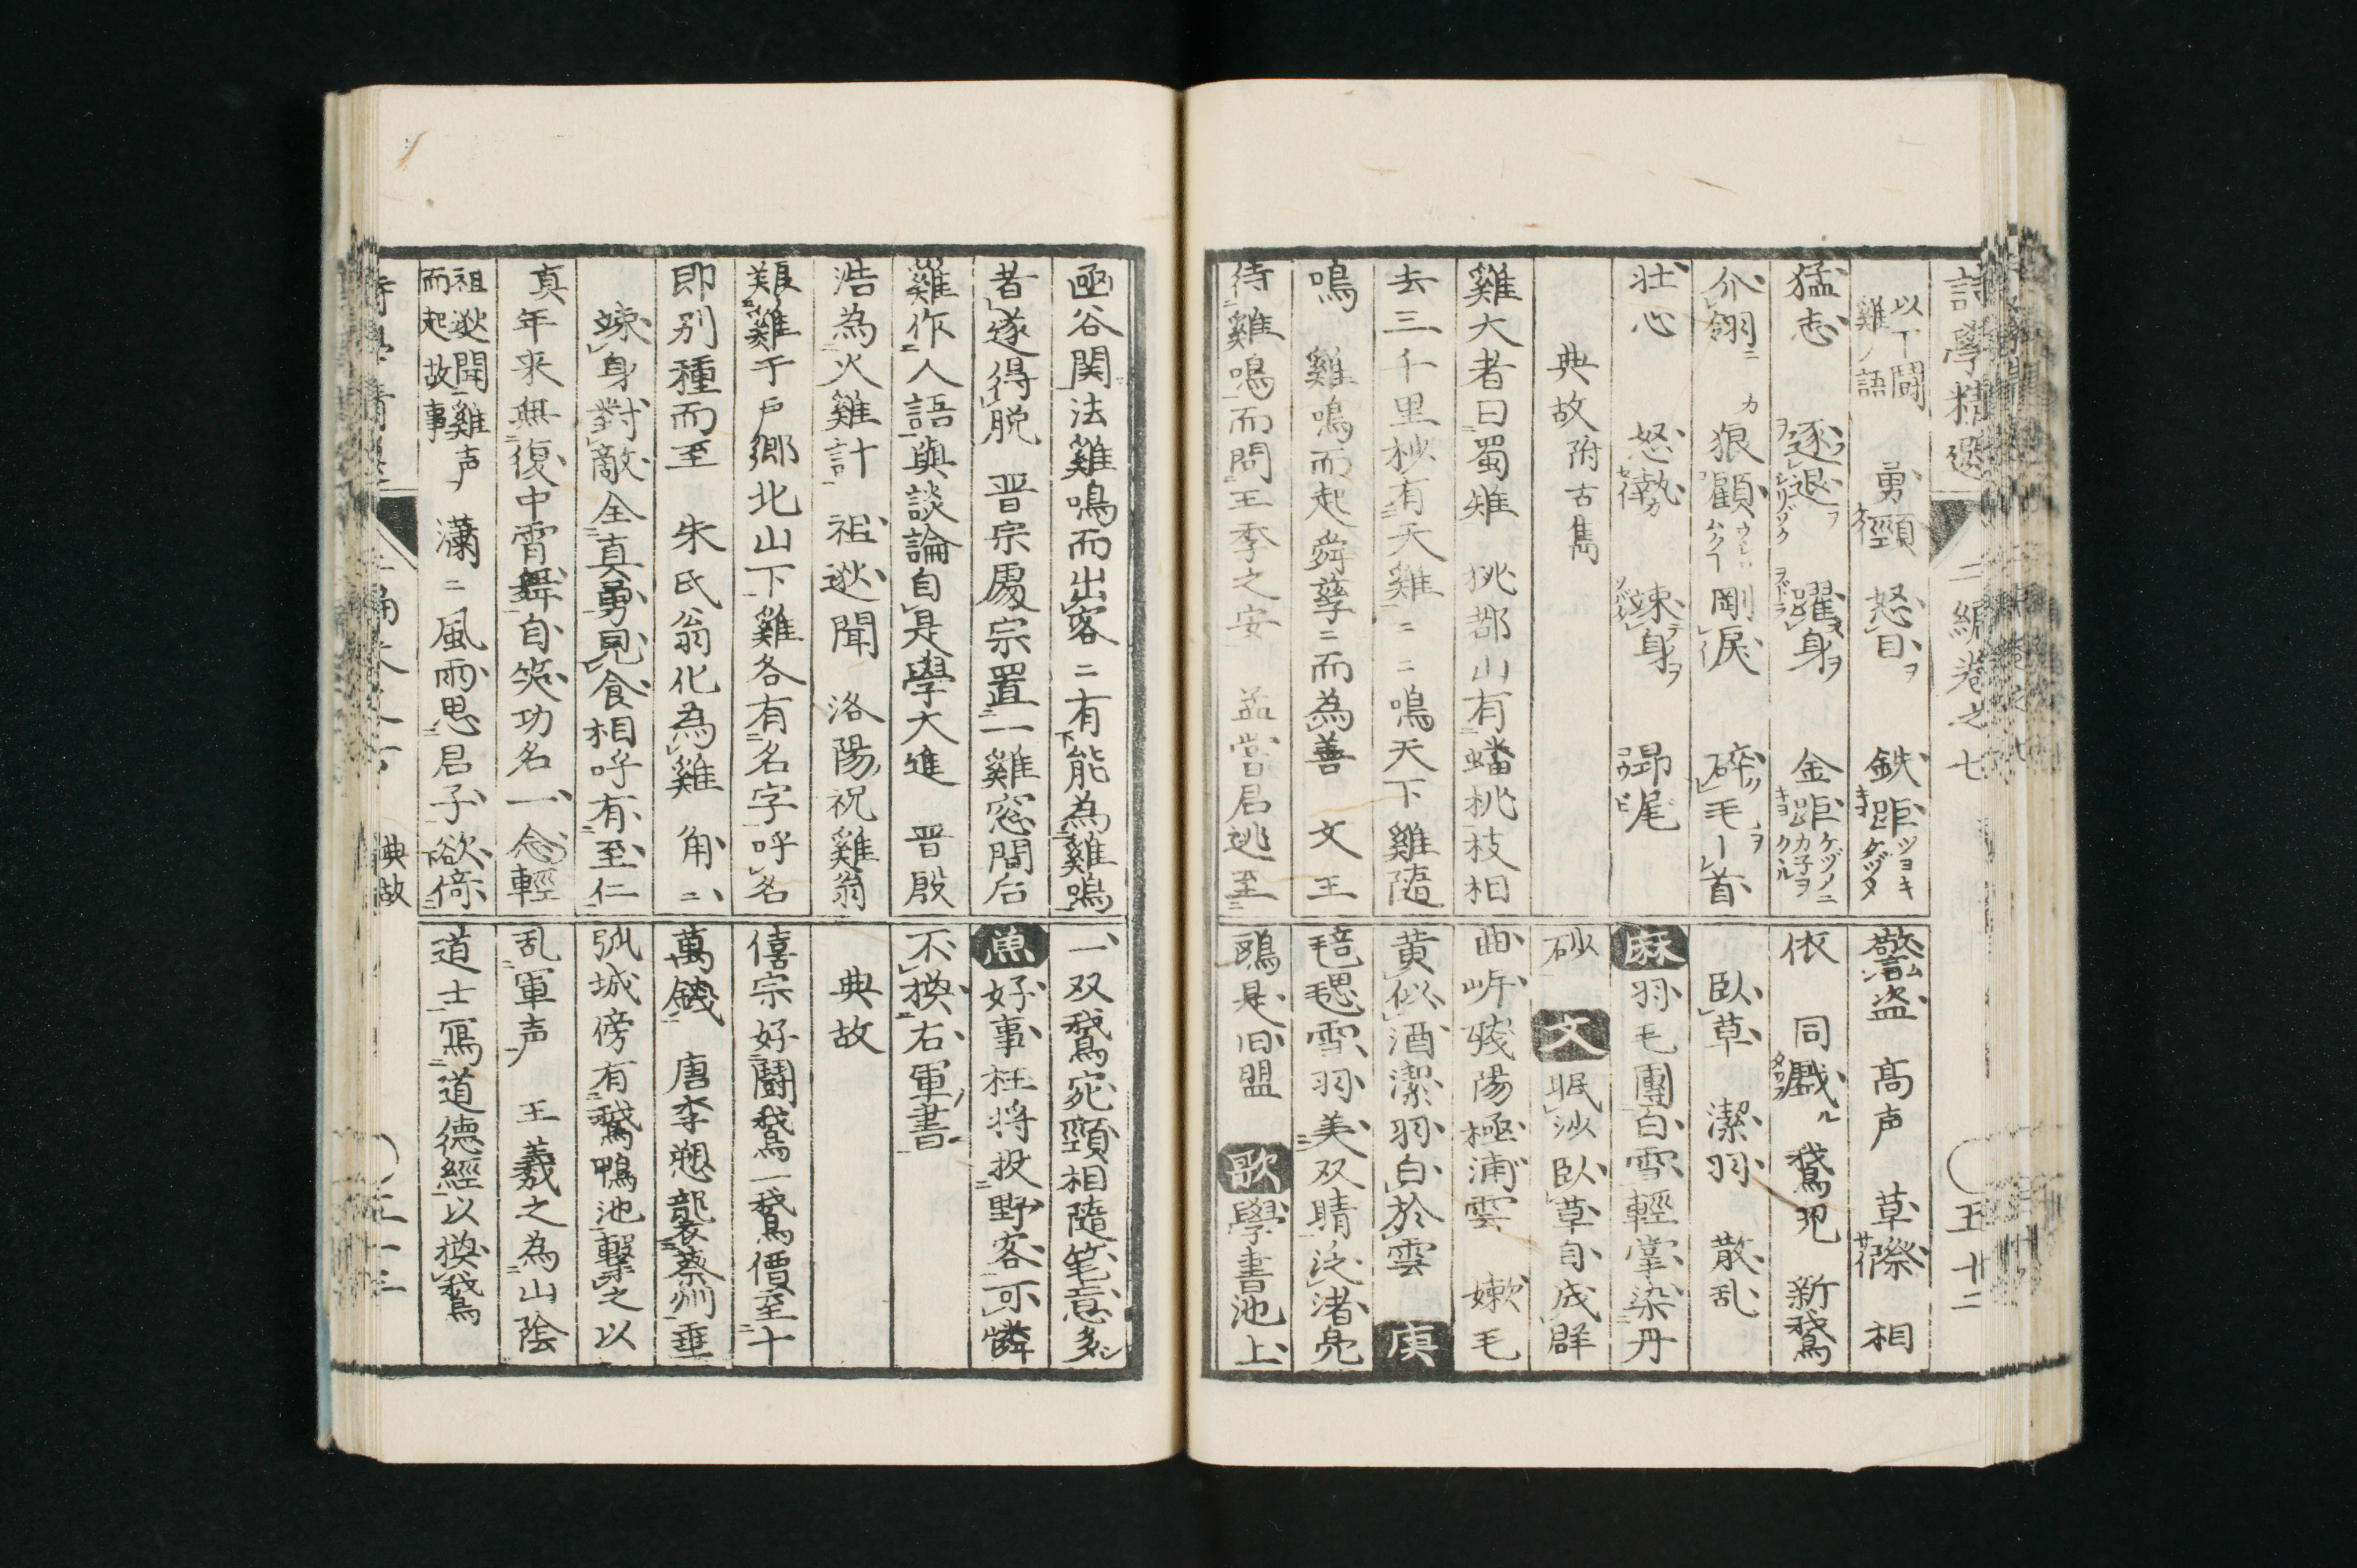 詩學精選 二編卷之七 五十二
以下闘
雞ノ語
勇頸 怒目ヲ 鉄距
猛志 逐退ヲ 躍身ヲ 金距
介翎ニ 狼顧 剛戻 碎毛ヲ 首
壮心 怒勢 竦身ヲ 昂尾
典故 附古雋
雞大者曰蜀雉 挑都山有蟠桃枝相
去三千里杪有天雞ニニ鳴天下雞隨
鳴 雞鳴而起舜孳ニ而為善 文王
待雞鳴而問王季之安 孟嘗君逃至
警盗 高声 草際 相
依 同戯ル 鵞児 新鵞
臥草 潔羽 散乱
麻 羽毛團白雪輕掌染丹
砂 文 眠沙臥草自成群
曲岍殘陽極浦雲 嫩毛
黄似酒潔羽白於雲 庚
毰毸雪羽美双睛泛渚亮
鷗是旧盟 歌 學書池上
函谷関法雞鳴而出客ニ有能為雞鳴
者遂得脱 晋宗處宗置一雞窓間后
雞作人語與談論自是學大進 晋殷
浩為火雞計 祖逖聞 洛陽祝雞翁
養雞于尸郷北山下雞各有名字呼名
即别種而至 朱氏翁化為雞 角ニ
竦身對敵全真勇見食相呼有至仁
真年来無復中霄舞自笑功名一念輕
祖逖聞雞声
而起故事
瀟ニ風雨思君子欲倚
一双鵞宛頸相隨筆意多シ
魚 好事枉将投野客可憐
不換右軍書
典故
僖宗好鬪鵞一鵞價至十
萬錢 唐李愬襲蔡州垂
弧城傍有鵞鴨池繋之以
乱軍声 王羲之為山陰
道士寫道德經以換鵞
典故